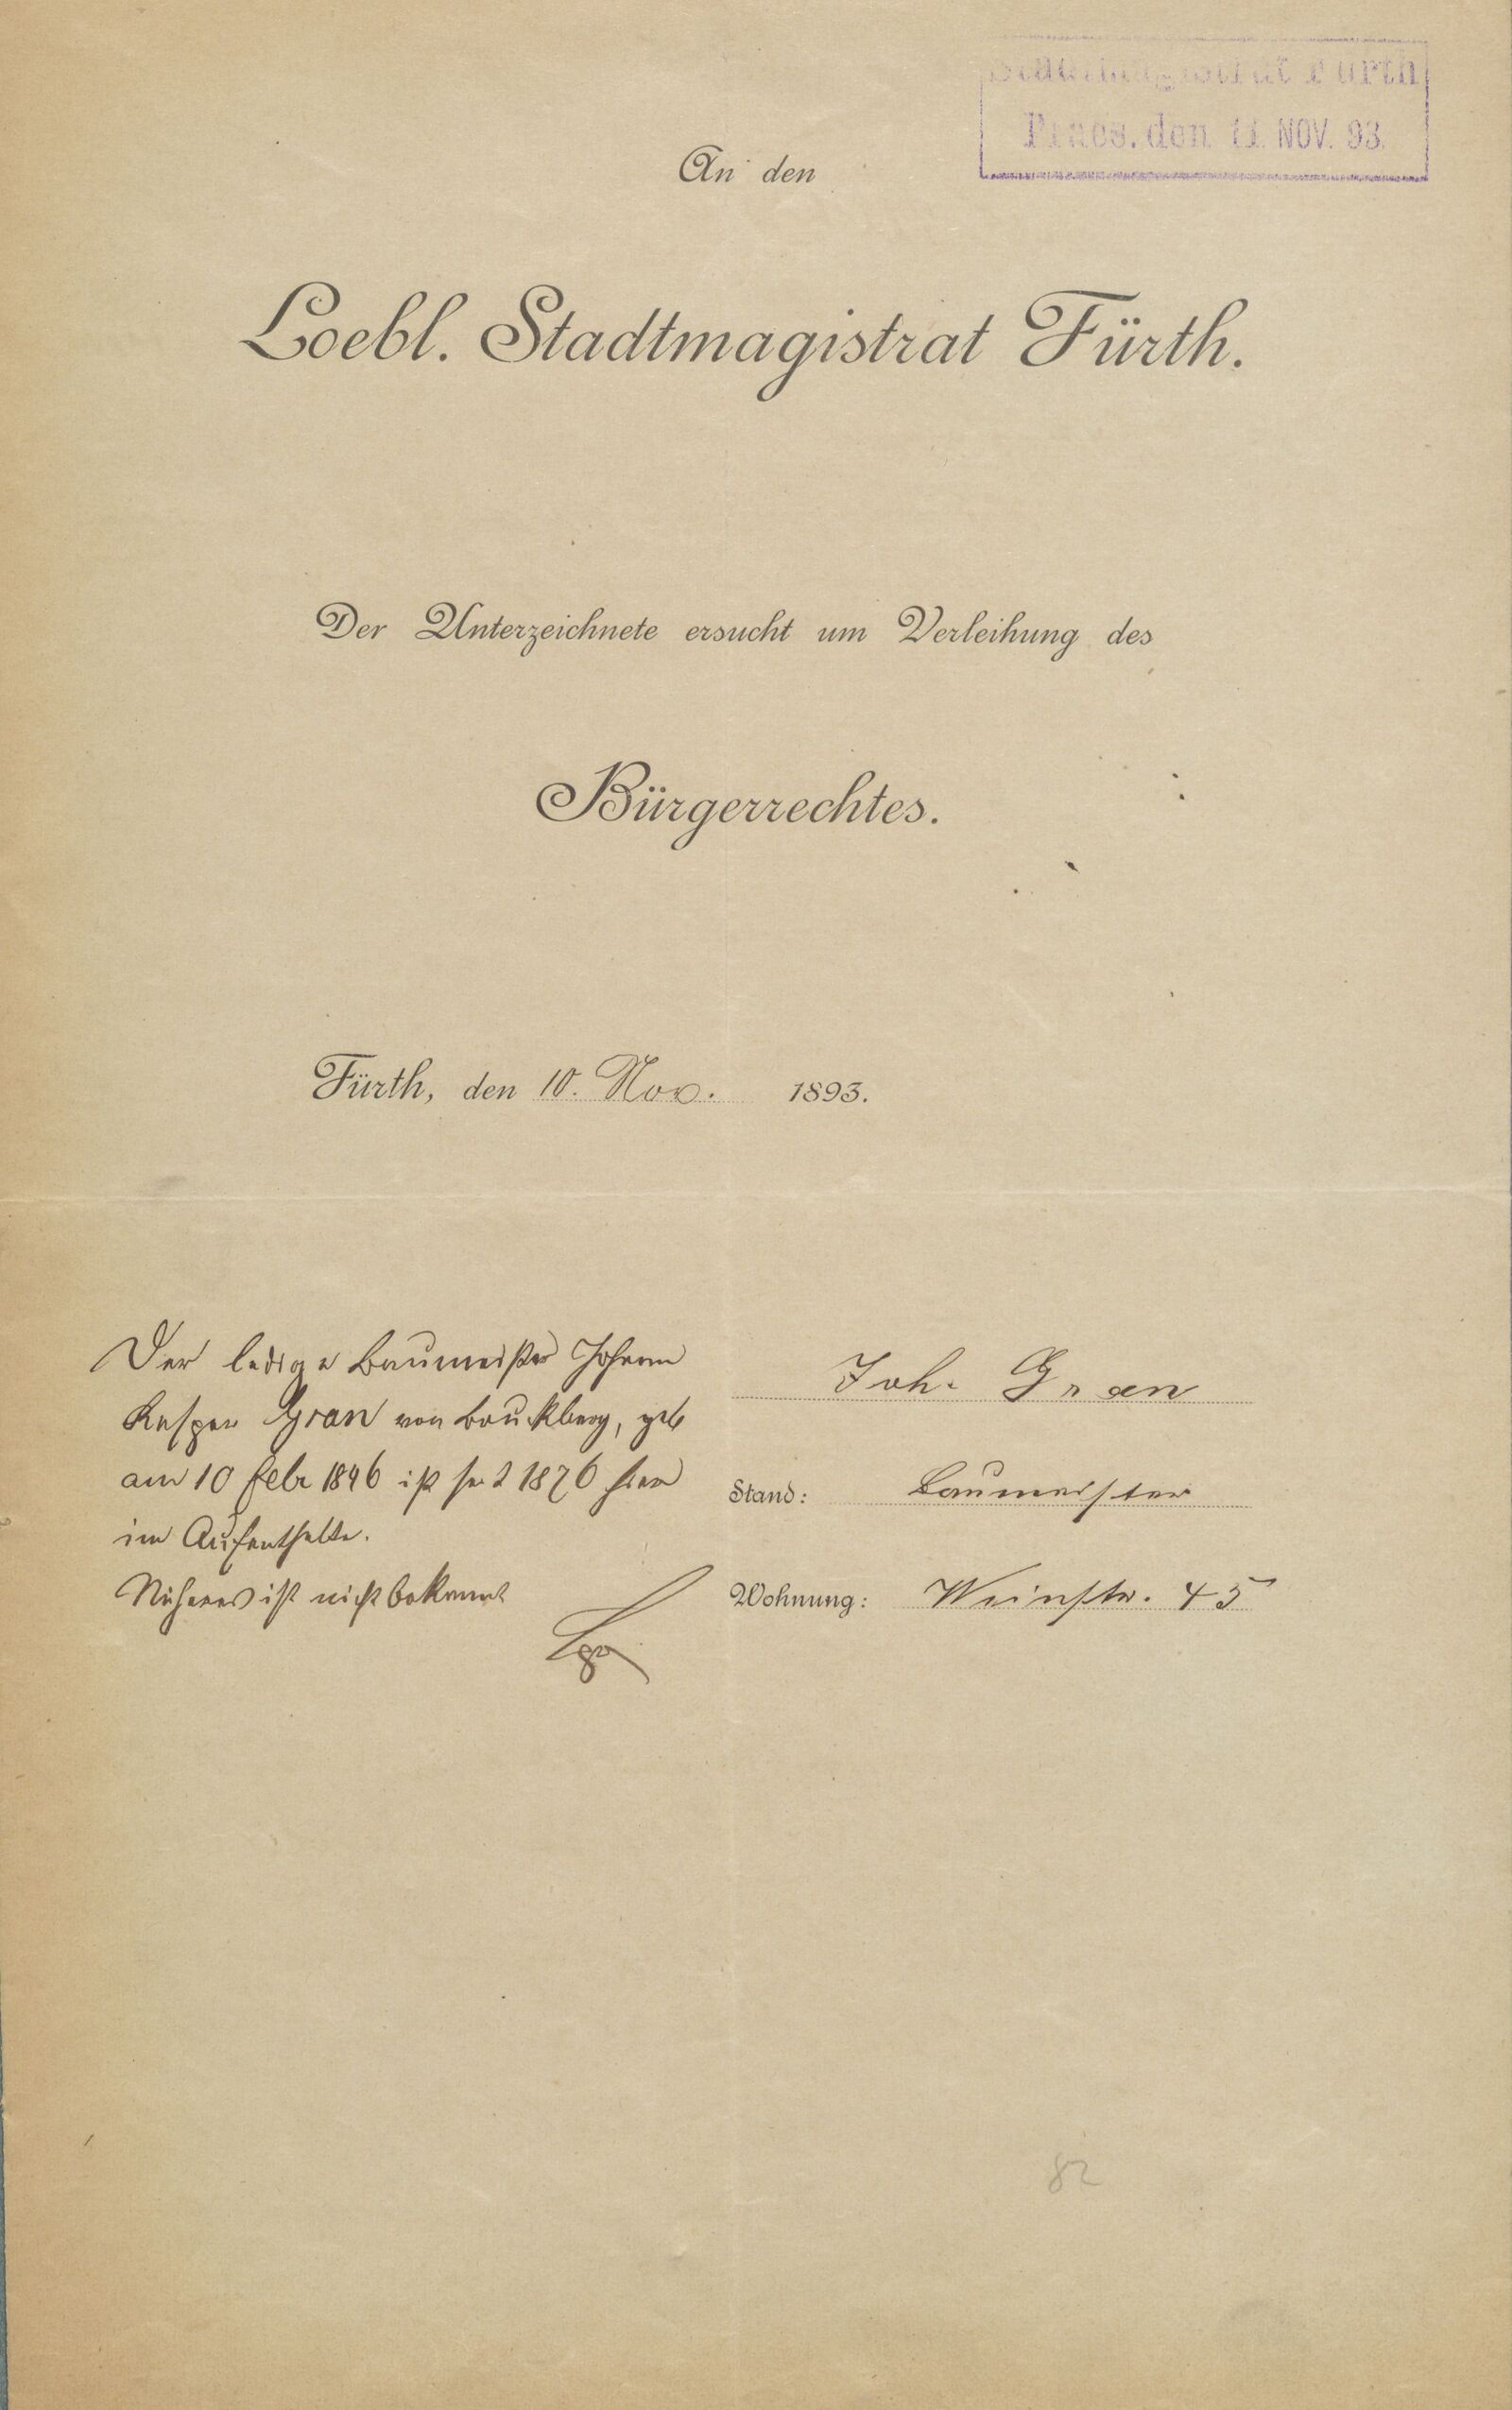 Stadtmagistrat Fürth
Praes. den 11. NOV. 93.
An den
Loebl. Stadtmagistrat Fürth.
Der Unterzeichnete ersucht um Verleihung des
Bürgerrechtes.
Fürth, den 10. Nov. 1893.
Der ledige Baumeister Johann
Kaspar Gran von Bruckberg, geb
am 10 Febr 1846 ist seit 1876 hier
im Aufenthalte.
Näheres ist nicht bekannt
Joh. Gran
Stand: Baumeister
Wohnung: Weinstr. 45
82